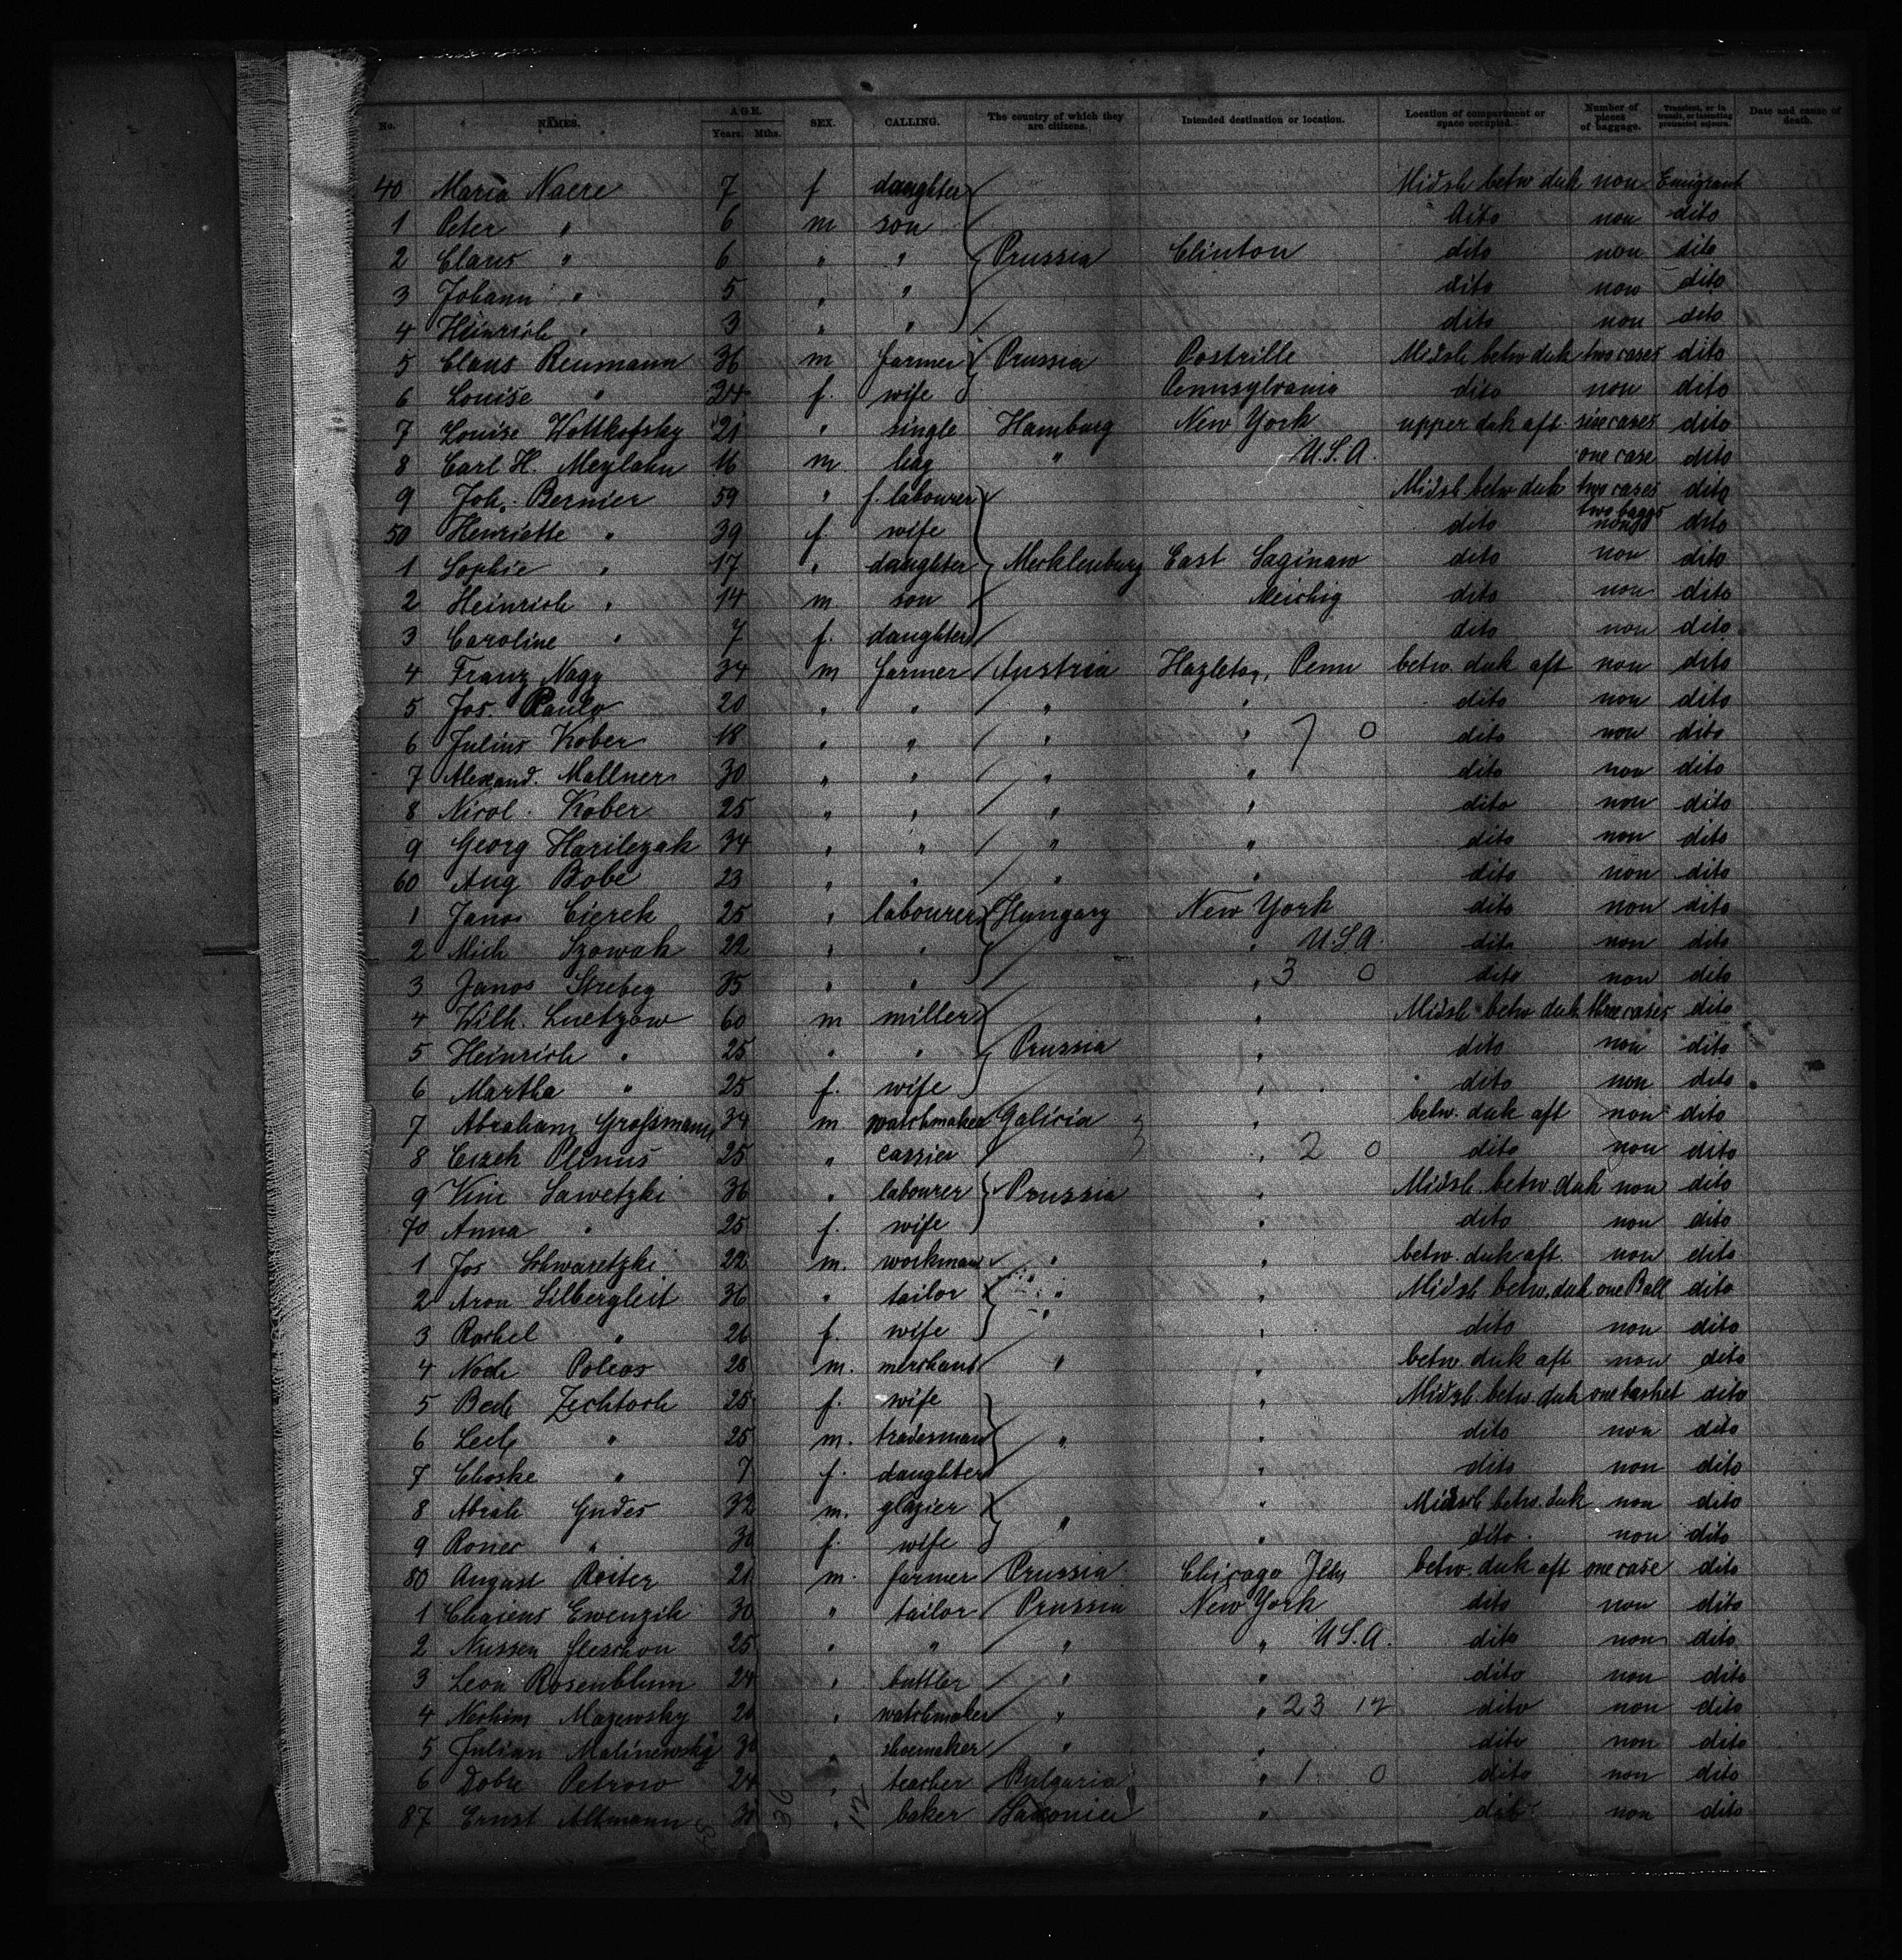 No. NAMES. AGE. Years. Mths. SEX. CALLING. The country of which they are citizens. Intended destination or location. Location of compartment or space occupied. Number of pieces of baggage. Transient, or in transit, or intending protracted sojourn. Date and cause of death.
40 Maria Naere 7 f daughter Midsh betw duk non Emigrant
1 Peter " 6 m son dito non dito
2 Claus " 6 " " Prussia Clinton dito non dito
3 Johann " 5 " " dito non dito
4 Heinrich " 3 " " dito non dito
5 Claus Reumann 36 m farmer Prussia Postville Midsh betw duk two cases dito
6 Louise " 24 f. wife Pennsylvania dito non dito
7 Louise Wottkofsky 21 " single Hamburg New York upper duk aft. dito
8 Carl H. Meylahn 16 m " U.S.A. one case dito
9 Joh. Bernier 59 " f. labourer Midsh betw duk two cases two baggs dito
50 Henriette " 39 f. wife dito non dito
1 Sophie " 17 " daughter Mecklenburg East Saginaw dito non dito
2 Heinrich " 14 m son Meichig dito non dito
3 Caroline " 7 f. daughter dito non dito
4 Franz Nagy 34 m farmer Austria Hazleton, Penn betw. duk aft non dito
5 Jos. Paulo 20 " " " " dito non dito
6 Julius Kober 18 " " " " 7 0 dito non dito
7 Alexand. Mallner 30 " " " " dito non dito
8 Nicol. Kober 25 " " " " dito non dito
9 Georg Harilezak 34 " " " " dito non dito
60 Aug Bobe 23 " " " " dito non dito
1 Janos Cierek 25 " labourer Hungary New York dito non dito
2 Mich Szowak 22 " " " U.S.A. dito non dito
3 Janos Strebey 35 " " " 3 0 dito non dito
4 Wilh. Luetzow 60 m miller " Midsh betw duk three cases dito
5 Heinrich " 25 " " Prussia " dito non dito
6 Martha " 25 f. wife " dito non dito
7 Abraham Großmann 34 m watchmaker Galicia " betw. duk aft non dito
8 Cizek Plinus 25 " cassier " 2 0 dito non dito
9 Vinc Sawetzki 36 " labourer Prussia " Midsh. betw duk non dito
70 Anna " 25 f. wife " dito non dito
1 Jos Schwaretzki 22 m. workman " " betw. duk aft. non dito
2 Aron Silbergleit 36 " tailor " " Midsh betw. duk one Ball dito
3 Rachel " 26 f. wife " " dito non dito
4 Noch Poleas 28 m. merchant " " betw. duk aft non dito
5 Bech Zechtoch 25 f. wife " Midsh. betw. duk one basket dito
6 " 25 m. tradesman " " dito non dito
7 Choske " 7 f. daughter " dito non dito
8 Abrah Gudes 32 m. glazier " Midsch betw. duk non dito
9 " 30 f. wife " " dito non dito
80 August Reiter 21 m. farmer Prussia Chicago Ills betw. duk aft one case dito
1 Chaiens Ewenzik 30 " tailor Prussia New York dito non dito
2 Nussen 25 " " " " U.S.A. dito non dito
3 Leon Rosenblum 24 " buttler " " dito non dito
4 Nechim Mazewsky " watchmaker " " 23 12 dito non dito
5 Julian Malinewsky " shoemaker " " dito non dito
6 Dobre Petrow 24 " teacher Bulgaria " 1 0 dito non dito
87 Ernst Altmann 30 " baker Saxonia " dito non dito